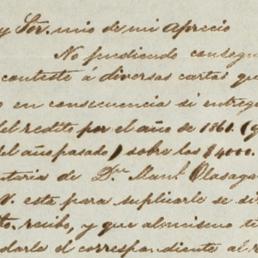 y Sor. mio de mi aprecio
No pudiendo consegu
conteste á diversas cartas qu
o en consecuencia si entreg
del redito por el año de 1861. (q
del año pasado) sobre los $4000.
ntaria de Dn. Manl. Olasaga
V. esta para suplicarle se si
to. recibo, y que al mismo ti
darle el correspondiente al r